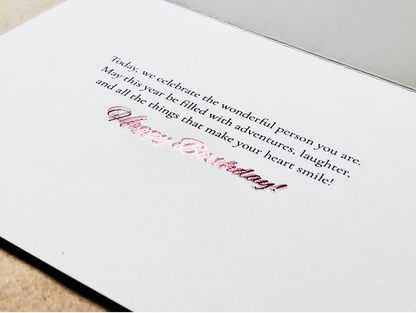 Today, we celebrate the wonderful person you are.
May this year be filled with adventures, laughter,
and all the things that make your heart smile!
Happy Birthday!